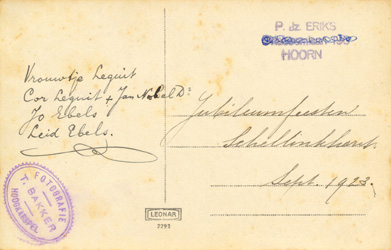 P. dz. ERIKS
HOORN
Vrouwtje Lequit
Cor Lequit + Jan Nobel Dz
Jo Ebels
Leid Ebels.
Jubileumfeesten
Schellinkhout.
Sept. 1923.
FOTOGRAFIE
T. BAKKER
HOOGKARSPEL
LEONAR
3293